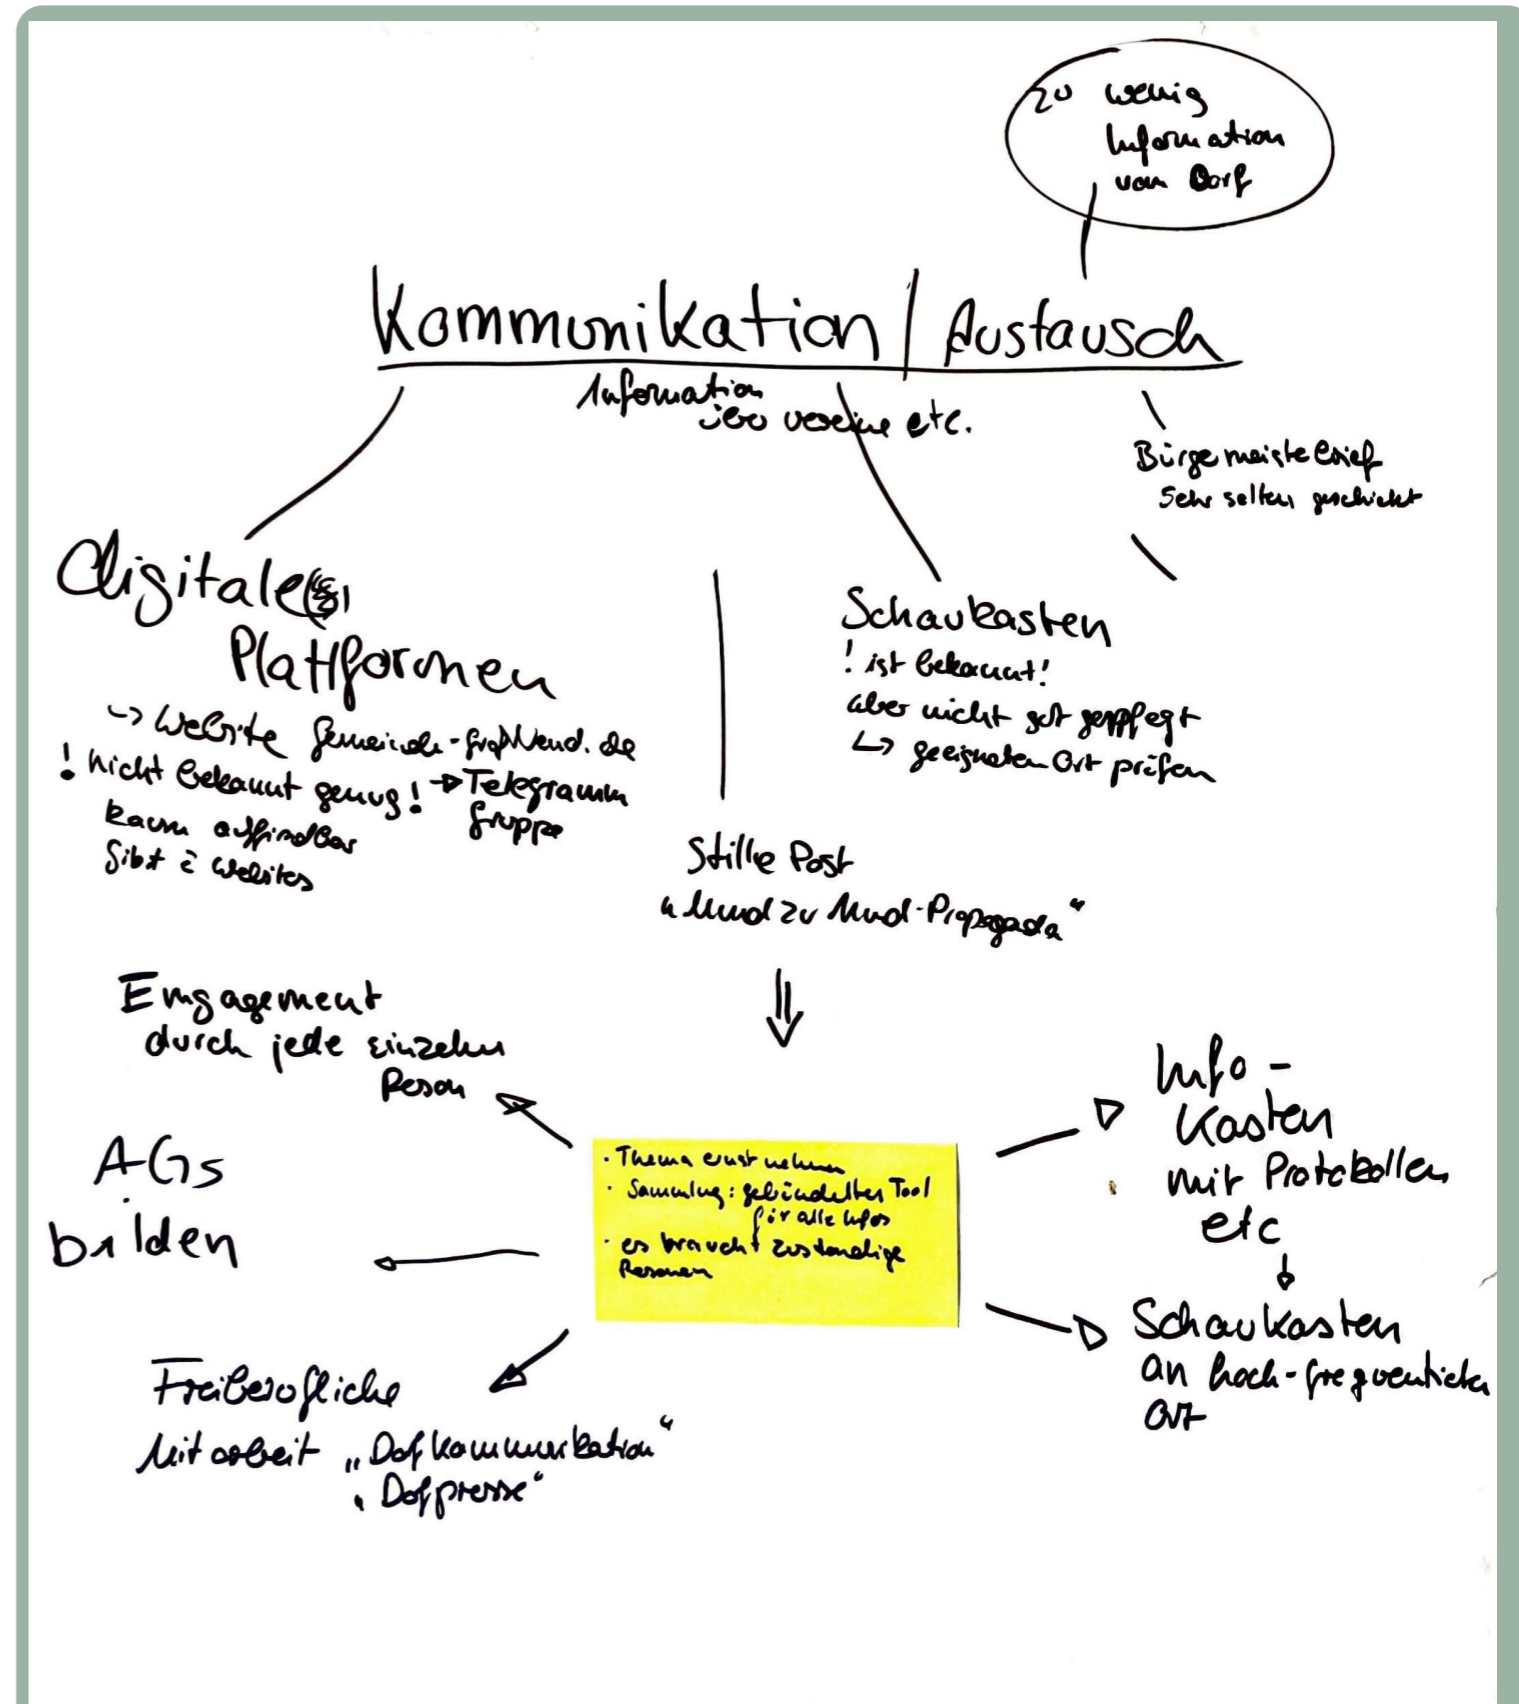 zu wenig
Information
vom Dorf
Kommunikation / Austausch
Information
über Vereine etc.
Bürgemeistebrief
Sehr selten geschickt
digitale
Plattformen
↳ Website Gemeinde-
! nicht bekannt genug! → Telegramm
Gruppe
kaum auffindbar
Gibt 2 Websites
Schaukasten
! ist bekannt!
aber nicht gut gepflegt
↳ geeigneten Ort prüfen
Stille Post
"Mund zu Mund-Propaganda"
Emgagement
durch jede einzelnen
Person
AGs
bilden
Freiberufliche
Mitarbeit „Dofkommunikation"
„Dofpresse"
· Thema ernst nehmen
· Sammlung: gebündeltes Tool
für alle Infos
· es braucht zuständige
Personen
Info-
Kasten
mit Protokollen
etc
↓
Schaukasten
an hoch-frequentierten
Ort